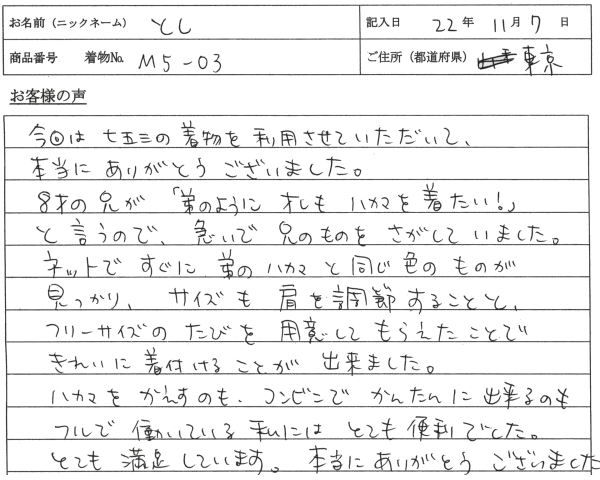 お名前（ニックネーム） とし 記入日 22年 11月 7日
商品番号 着物No. M5-03 ご住所（都道府県） 東京
お客様の声
今回は七五三の着物を利用させていただいて、
本当にありがとうございました。
8才の兄が「弟のように オレも ハカマを着たい!」
と言うので、急いで兄のものをさがしていました。
ネットですぐに弟のハカマと同じ色のものが
見つかり、サイズも肩を調節することと、
フリーサイズのたびを用意してもらえたことで
きれいに着付けることが出来ました。
ハカマをかえすのも、コンビニでかんたんに出来るのも
フルで働いている私にはとても便利でした。
とても満足しています。本当にありがとうございました